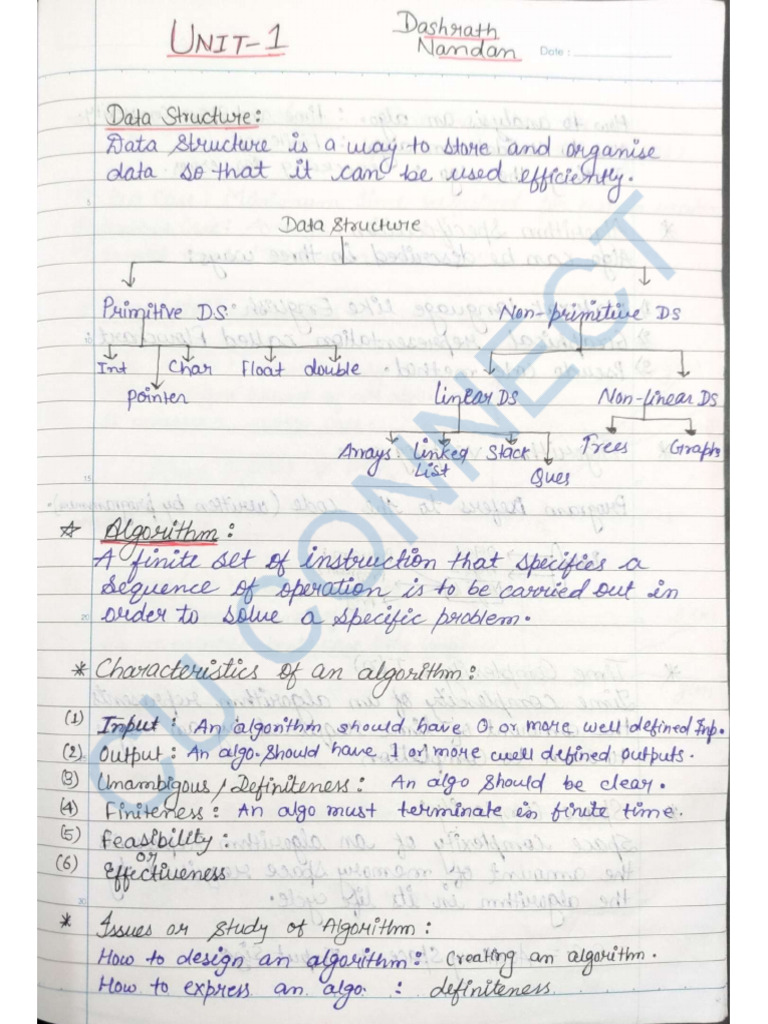 UNIT-1
Dashrath
Nandan
Date :
Data Structure:
Data Structure is a way to store and organise
data so that it can be used efficiently.
Data Structure
Primitive DS. Non-primitive DS
Int Char Float double
Pointer
linear DS Non-linear DS
Arrays Linked Stack Trees Graphs
List Ques
☆ Algorithm:
A finite set of instruction that specifies a
sequence of operation is to be carried out in
order to solve a specific problem.
* Characteristics of an algorithm:
(1) Input: An algorithm should have 0 or more well defined Inp.
(2) Output: An algo. should have 1 or more well defined outputs.
(3) Unambigous / Definiteness: An algo should be clear.
(4) Finiteness: An algo must terminate in finite time.
(5) Feasibility:
or
(6) Effectiveness
* Issues or study of Algorithm:
How to design an algorithm: Creating an algorithm.
How to express an algo. : definiteness
CU CONNECT